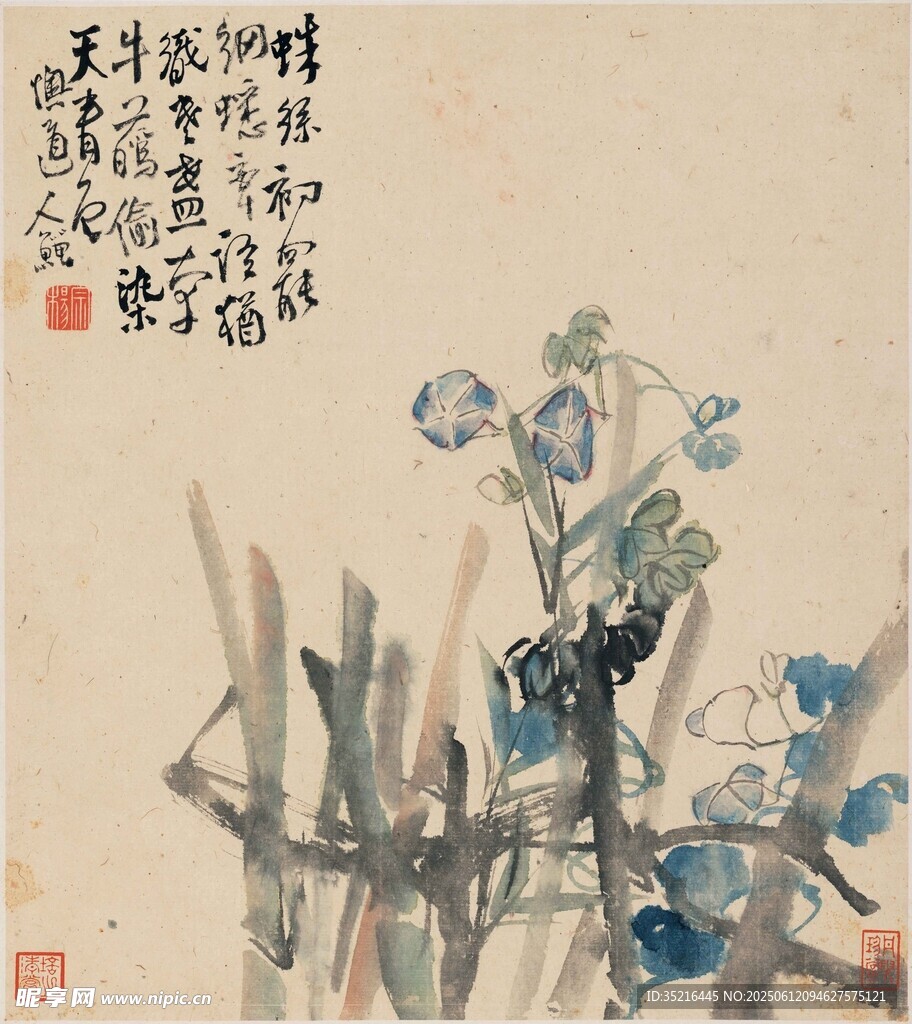 蛛絲初能
網蟋語猶
織盡牽
牛偷染
天青色
懊道人鱓
宗楊
昵享网 www.nipic.cn
ID:35216445 NO:20250612094627575121